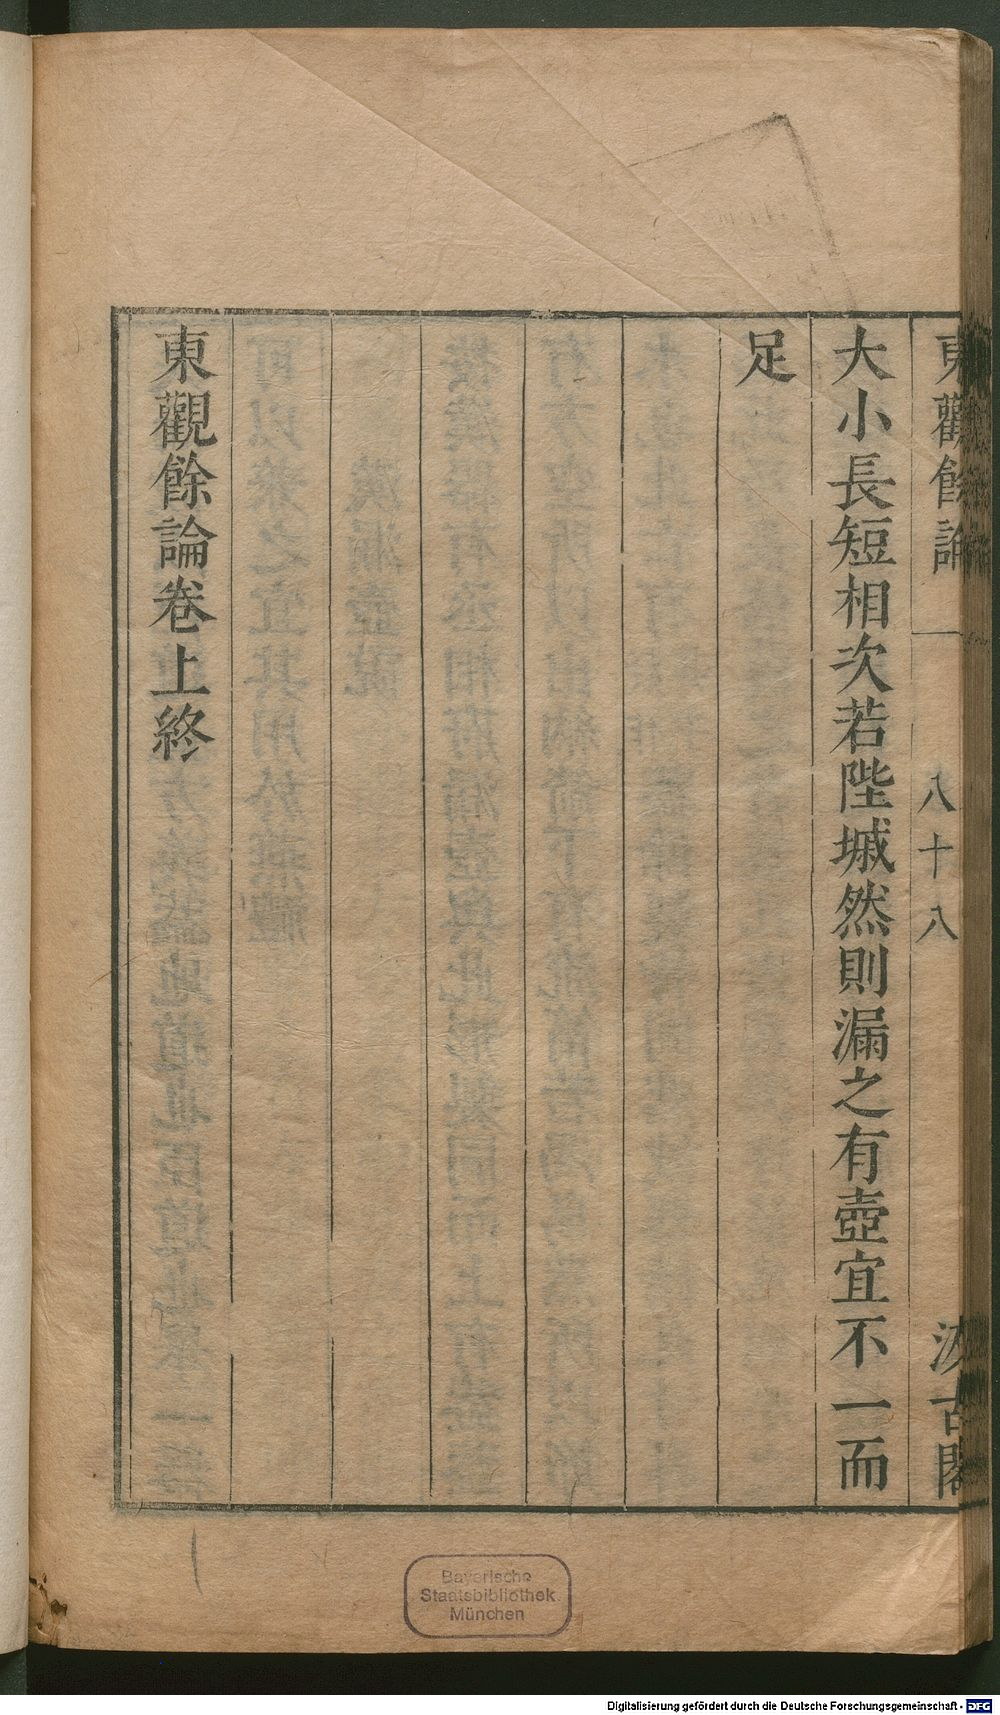 東觀餘論
八十八
汲古閣
大小長短相次若陛城然則漏之有壺宜不一而
足
東觀餘論卷上終
Bayerische
Staatsbibliothek
München
Digitalisierung gefördert durch die Deutsche Forschungsgemeinschaft - DFG